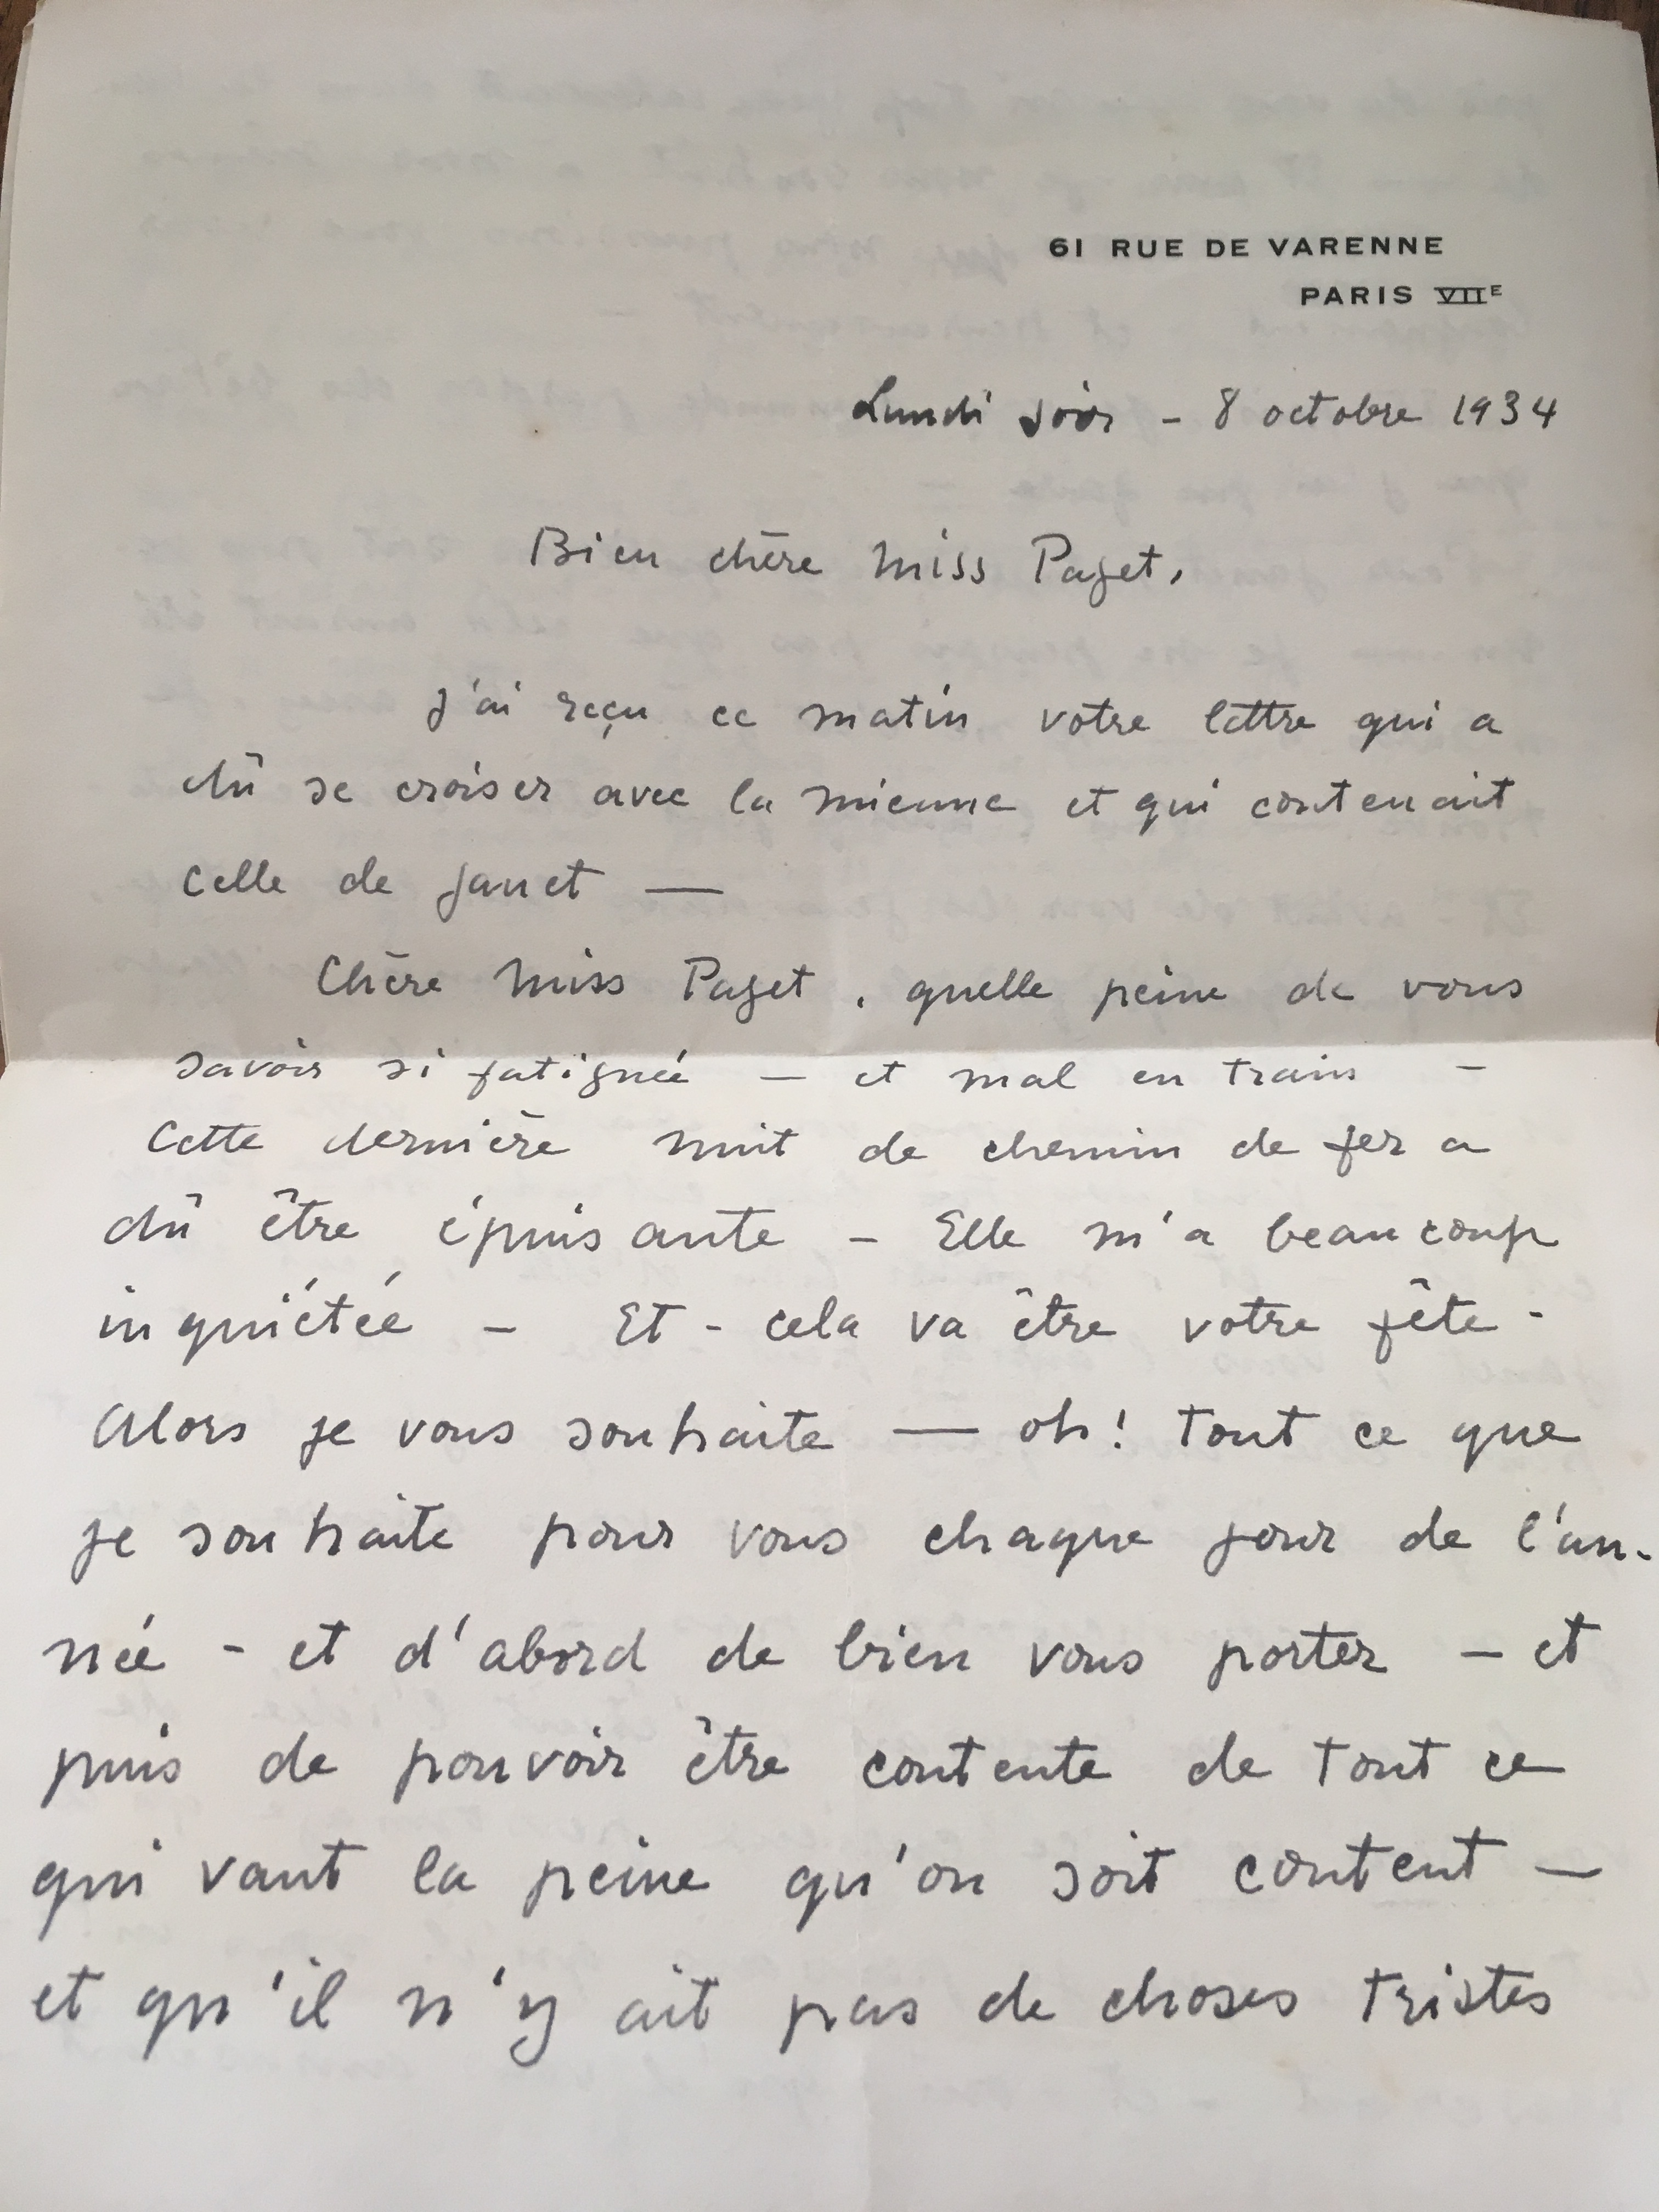 61 RUE DE VARENNE
PARIS VIIE
Lundi soir - 8 octobre 1934
Bien chère Miss Paget,
J'ai reçu ce matin votre lettre qui a
dû se croiser avec la mienne et qui contenait
celle de Janet —
Chère Miss Paget, quelle peine de vous
savoir si fatiguée — et mal en train -
Cette dernière nuit de chemin de fer a
dû être épuisante - Elle m'a beaucoup
inquiétée - Et - cela va être votre fête -
Alors je vous souhaite — oh! tout ce que
je souhaite pour vous chaque jour de l'an-
née - et d'abord de bien vous porter - et
puis de pouvoir être contente de tout ce
qui vaut la peine qu'on soit content —
et qu'il n'y ait pas de choses tristes